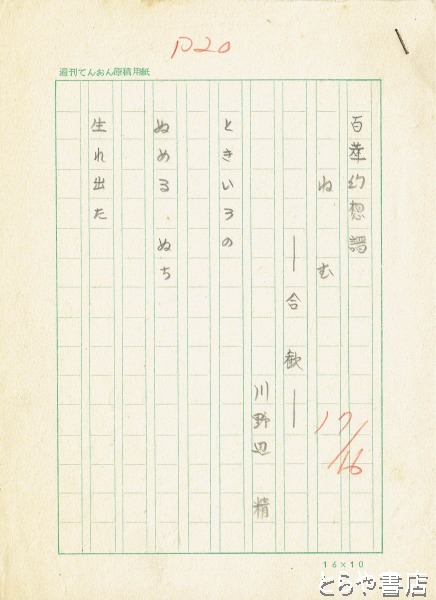 P20
週刊てんおん原稿用紙
百華幻想譜
ねむ
―合歓―
17/16
川野辺 精
ときいろの
ぬめる ぬち
生れ出た
16×10
とらや書店